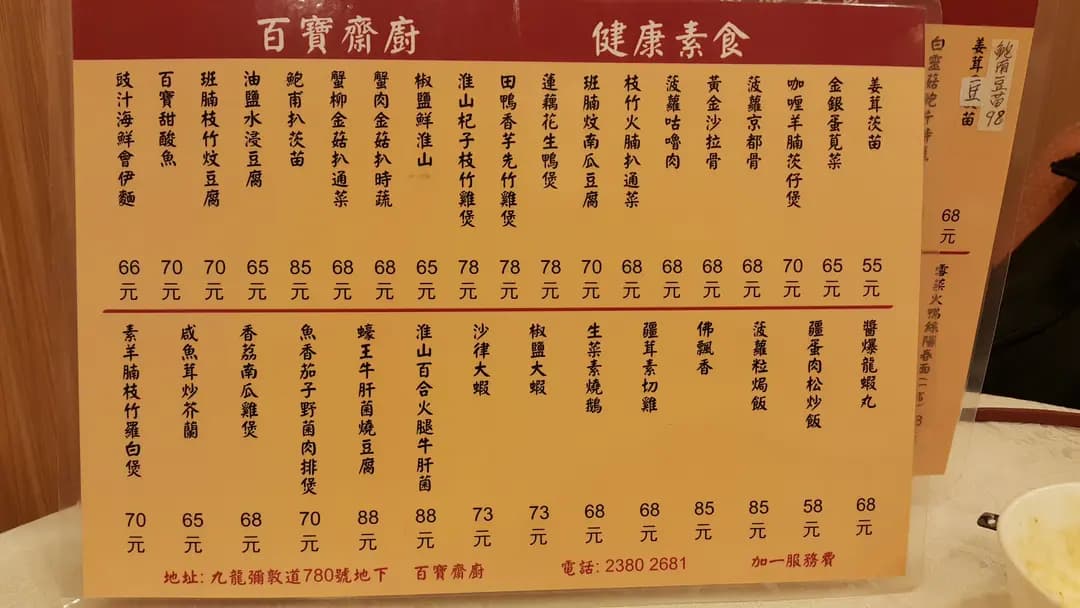 百寶齋廚 健康素食
姜茸茨苗 55元
金銀蛋莧菜 65元
咖喱羊腩茨仔煲 70元
菠蘿京都骨 68元
黃金沙拉骨 68元
菠蘿咕嚕肉 68元
枝竹火腩扒通菜 68元
班腩炆南瓜豆腐 70元
蓮藕花生鴨煲 78元
田鴨香芋先竹雞煲 78元
淮山杞子枝竹雞煲 78元
椒鹽鮮淮山 65元
蟹肉金菇扒時蔬 68元
蟹柳金菇扒通菜 68元
鮑甫扒茨苗 85元
油鹽水浸豆腐 65元
班腩枝竹炆豆腐 70元
百寶甜酸魚 70元
豉汁海鮮會伊麵 66元
醬爆龍蝦丸 68元
疆蛋肉松炒飯 58元
菠蘿粒焗飯 85元
佛飄香 85元
疆茸素切雞 68元
生菜素燒鵝 68元
椒鹽大蝦 73元
沙律大蝦 73元
淮山百合火腿牛肝菌 88元
蠔王牛肝菌燒豆腐 88元
魚香茄子野菌肉排煲 70元
香荔南瓜雞煲 68元
咸魚茸炒芥蘭 65元
素羊腩枝竹羅白煲 70元
地址: 九龍彌敦道780號地下 百寶齋廚 電話: 2380 2681 加一服務費
豆苗98
姜茸豆苗
白靈菇
68元
雪菜火鴨絲陽春面